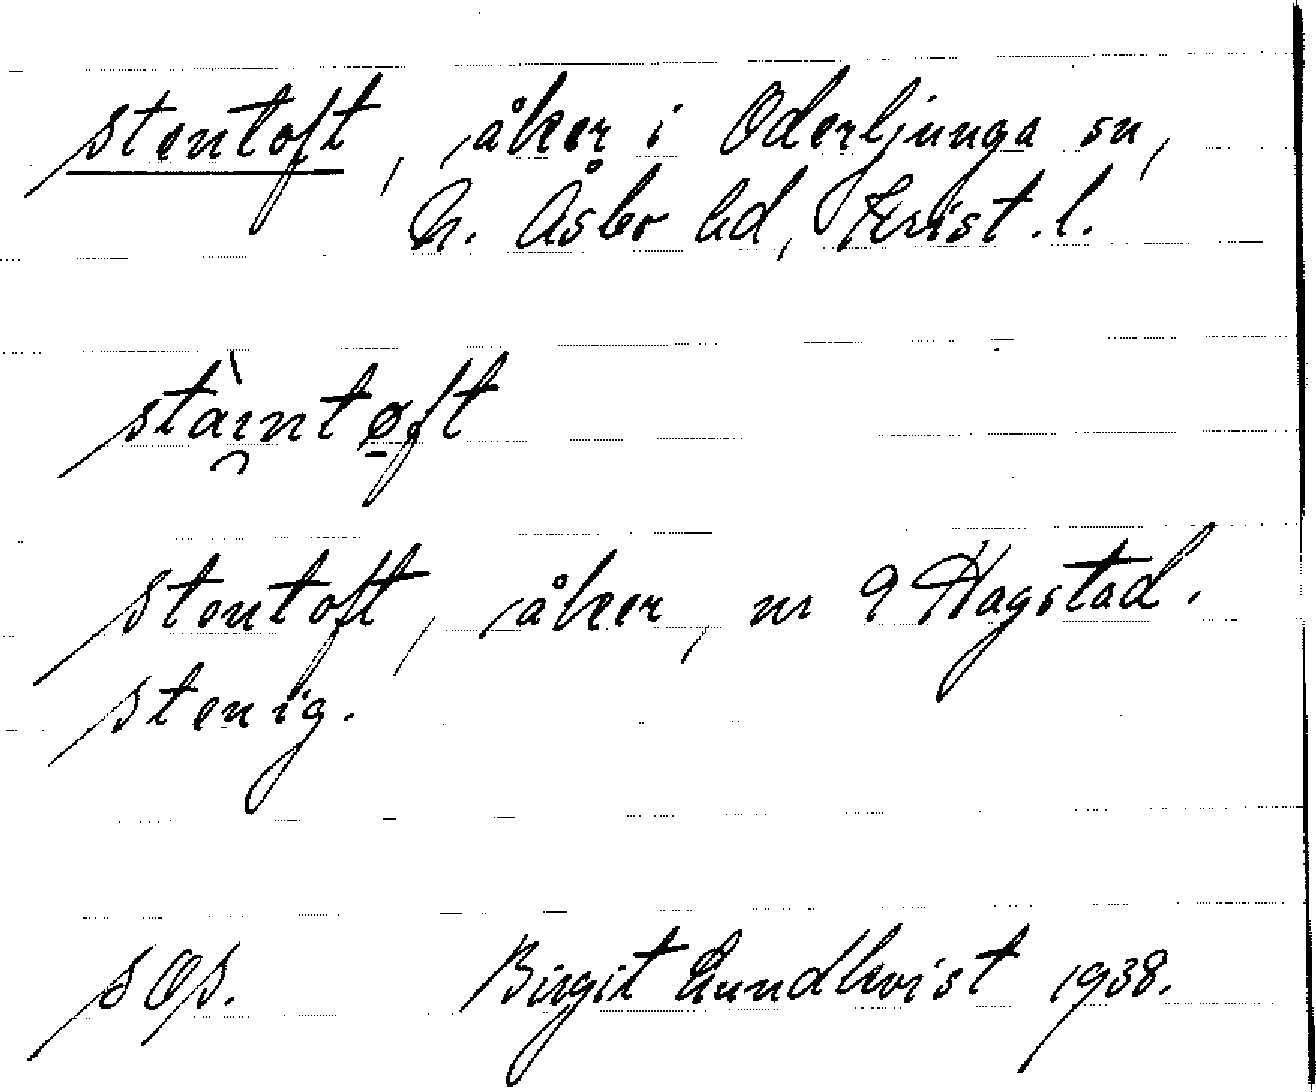 stentoft, åker i Oderljunga sn,
N. Åsbo hd, Krist. l.
stàı̯ntø̠ft
stentoft, åker, nr 9 Hagstad.
stenig.
sOs. Birgit Lundkvist 1938.